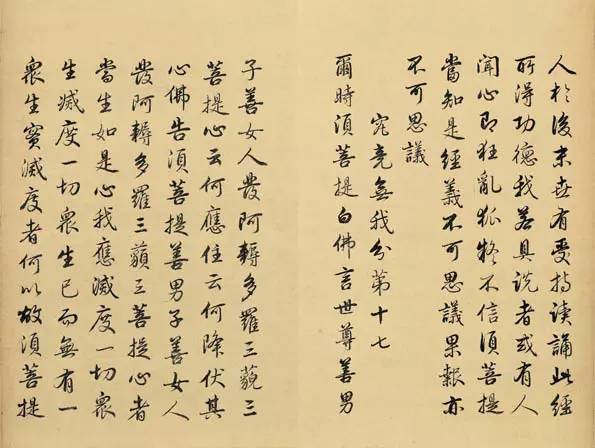 人於後末世有受持读誦此經
所得功德我若具说者或有人
聞心即狂亂狐疑不信須菩提
當知是經義不可思議果報亦
不可思議
究竟無我分第十七
爾時須菩提白佛言世尊善男
子善女人發阿耨多羅三藐三
菩提心云何應住云何降伏其
心佛告須菩提善男子善女人
發阿耨多羅三藐三菩提心者
當生如是心我應滅度一切衆
生滅度一切衆生已而無有一
衆生實滅度者何以故須菩提